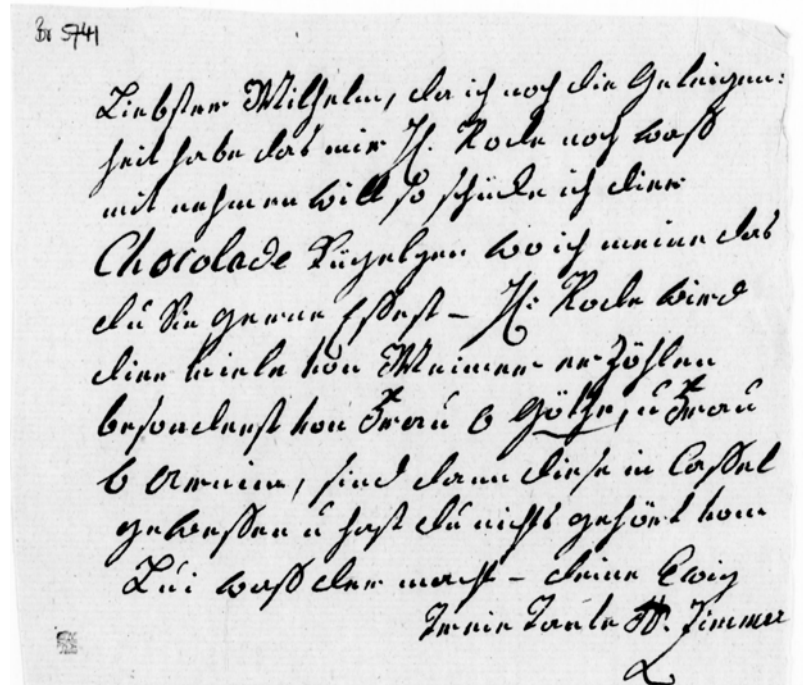 Br 5741
Liebster Wilhelm, da ich noch die Geleigen:
heit habe das mir H. Rode noch waß
mit nehmen will so schücke ich dier
Chocolade Kügelgen wo ich meine das
du Sie gerne Eßest – H: Rode wird
dier viele von Weimer erzöhlen
besonderst von Frau v Göthe, u Frau
v Arnim, sind dann diese in Cassel
geweßen u hast du nichts gehört vom
Lui waß der macht – deine Ewig
Treie Tante H. Zimmer